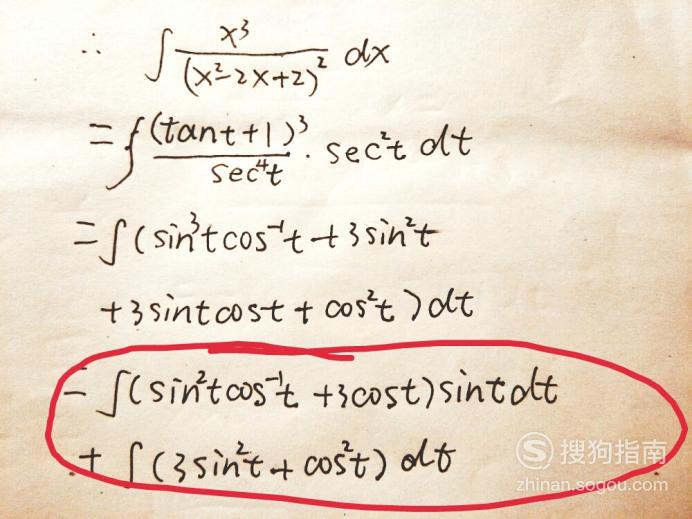 ∴ ∫ x³/(x²-2x+2)² dx
= ∫ (tant+1)³/sec⁴t · sec²t dt
= ∫ (sin³tcos⁻¹t + 3sin²t
+ 3sintcost + cos²t) dt
= ∫ (sin²tcos⁻¹t + 3cost) sintdt
+ ∫ (3sin²t + cos²t) dt
搜狗指南
zhinan.sogou.com